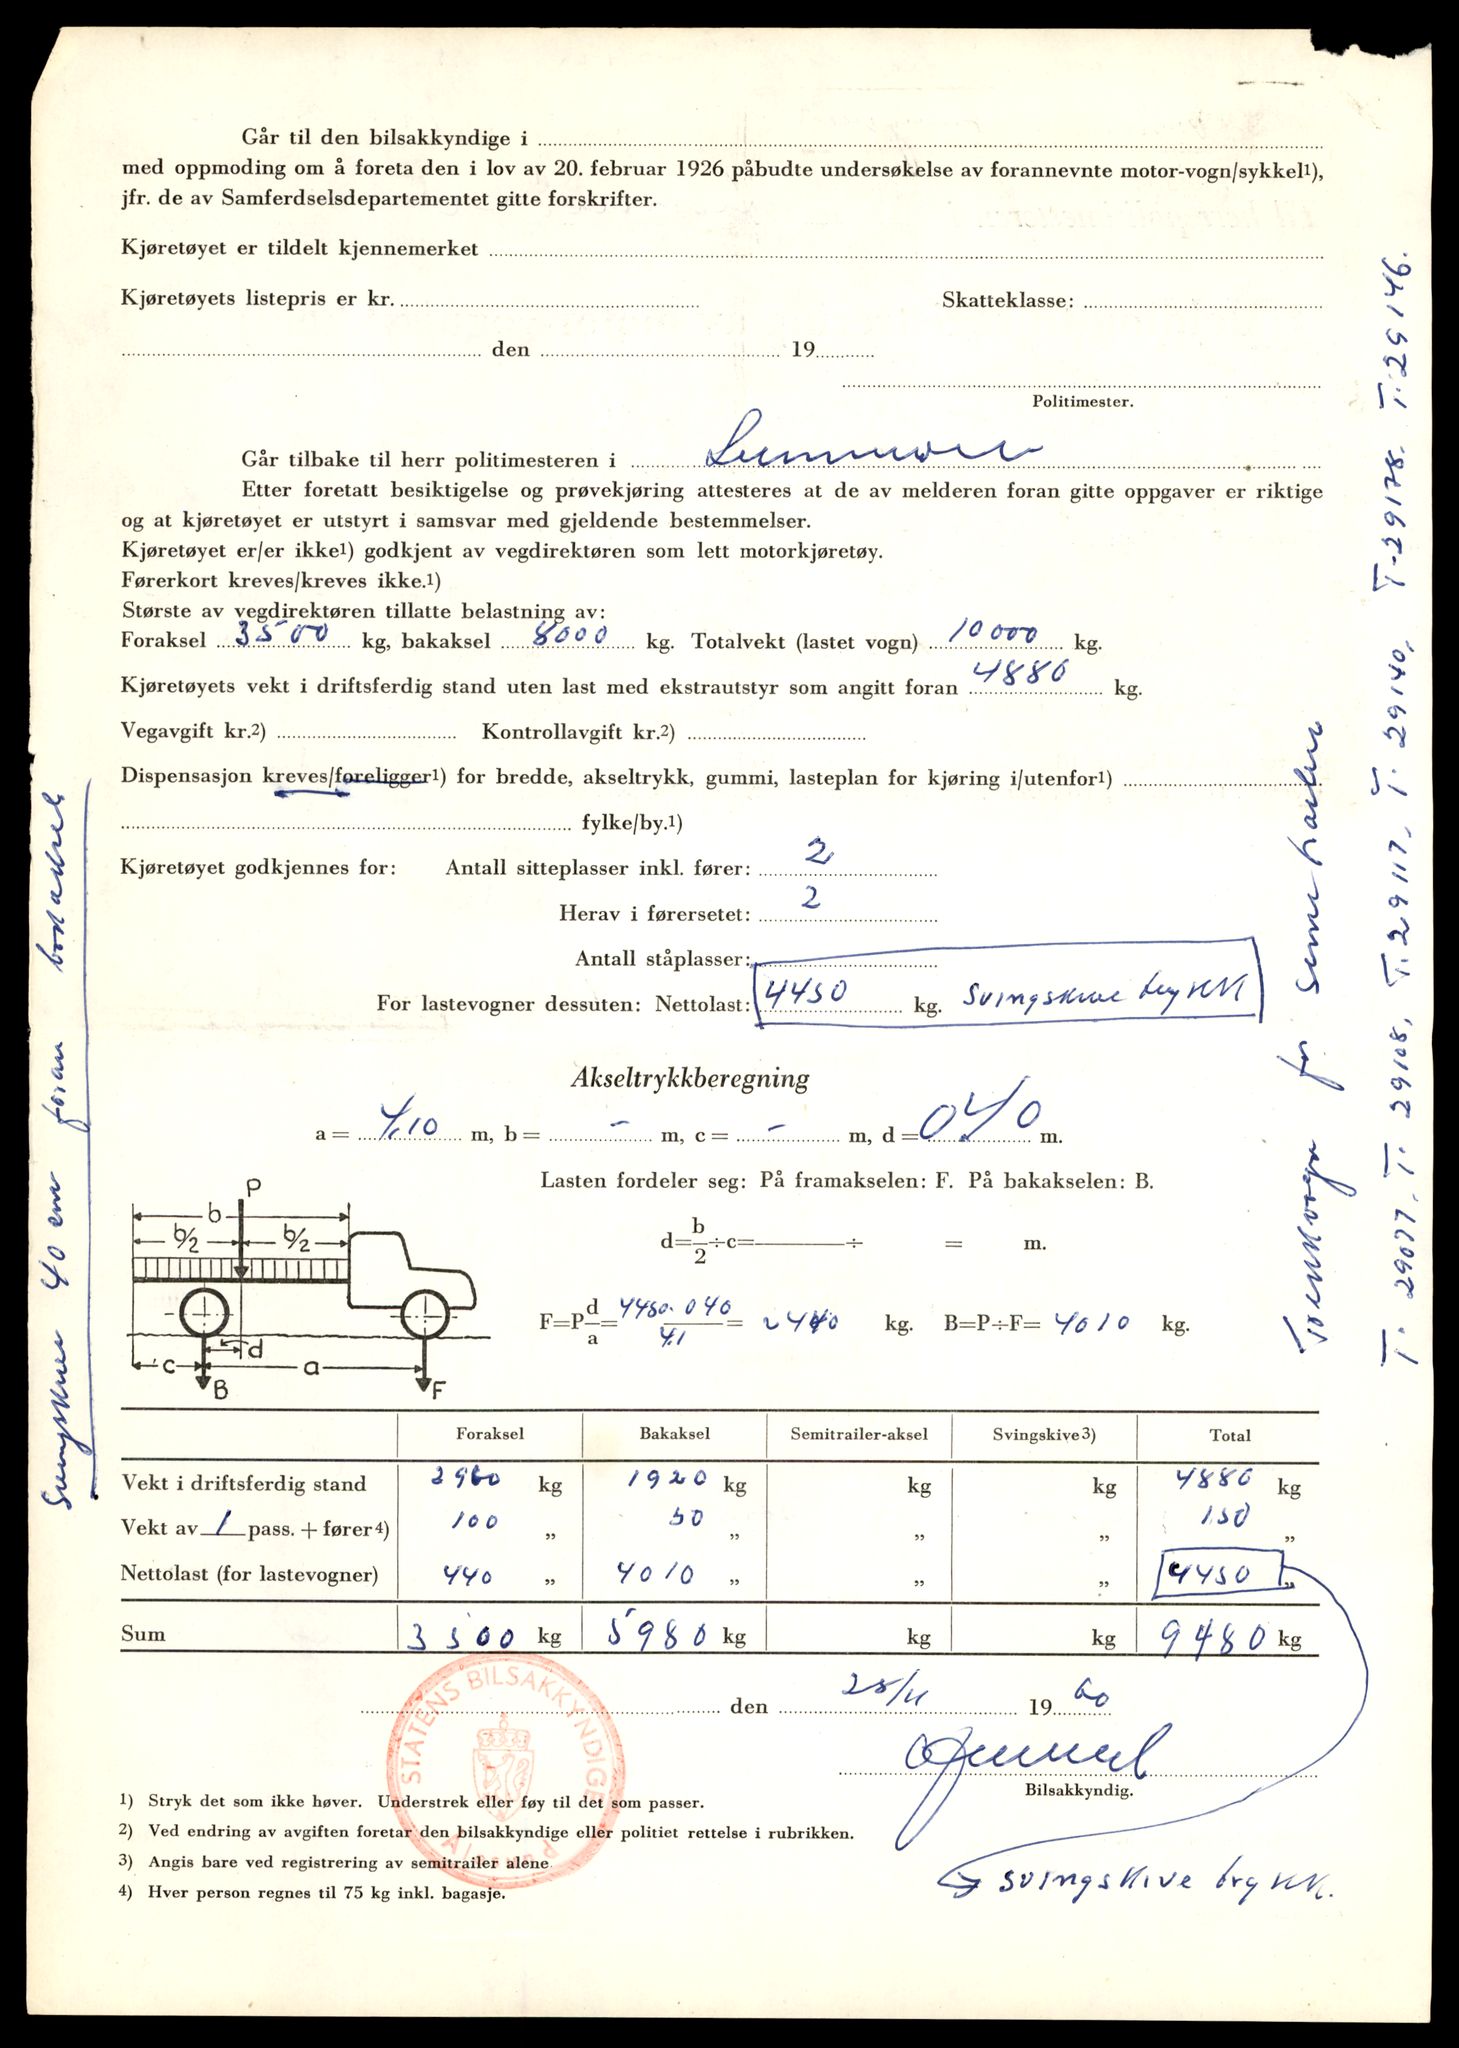 Går til den bilsakkyndige i
med oppmoding om å foreta den i lov av 20. februar 1926 påbudte undersøkelse av forannevnte motor-vogn/sykkel1),
jfr. de av Samferdselsdepartementet gitte forskrifter.
Kjøretøyet er tildelt kjennemerket
Kjøretøyets listepris er kr. Skatteklasse:
den 19
Politimester.
Går tilbake til herr politimesteren i
Etter foretatt besiktigelse og prøvekjøring attesteres at de av melderen foran gitte oppgaver er riktige
og at kjøretøyet er utstyrt i samsvar med gjeldende bestemmelser.
Kjøretøyet er/er ikke1) godkjent av vegdirektøren som lett motorkjøretøy.
Førerkort kreves/kreves ikke.1)
Største av vegdirektøren tillatte belastning av:
Foraksel 3500 kg, bakaksel 8000 kg. Totalvekt (lastet vogn) 10000 kg.
Kjøretøyets vekt i driftsferdig stand uten last med ekstrautstyr som angitt foran 4880 kg.
Vegavgift kr.2) Kontrollavgift kr.2)
Dispensasjon kreves/foreligger1) for bredde, akseltrykk, gummi, lasteplan for kjøring i/utenfor1)
fylke/by.1)
Kjøretøyet godkjennes for: Antall sitteplasser inkl. fører: 2
Herav i førersetet: 2
Antall ståplasser:
For lastevogner dessuten: Nettolast: 4450 kg. Svingskive trykk
Akseltrykkberegning
a = 4,10 m, b = - m, c = - m, d = 0,40 m.
Lasten fordeler seg: På framakselen: F. På bakakselen: B.
d=b/2÷c= ÷ = m.
F=P d/a= 4450·040/4,1 = 440 kg. B=P÷F= 4010 kg.
P
b
b/2 b/2
c d a
B F
Foraksel Bakaksel Semitrailer-aksel Svingskive3) Total
Vekt i driftsferdig stand 2960 kg 1920 kg kg kg 4880 kg
Vekt av 1 pass. + fører4) 100 „ 50 „ „ „ 150 „
Nettolast (for lastevogner) 440 „ 4010 „ „ „ 4450 „
Sum 3500 kg 5980 kg kg kg 9480 kg
den 25/11 1960
Bilsakkyndig.
STATENS BILSAKKYNDIGE
1) Stryk det som ikke høver. Understrek eller føy til det som passer.
2) Ved endring av avgiften foretar den bilsakkyndige eller politiet rettelse i rubrikken.
3) Angis bare ved registrering av semitrailer alene.
4) Hver person regnes til 75 kg inkl. bagasje.
svingskive trykk.
40 cm foran bakaksel
for
T. 29077, T. 29108, T. 29117, T. 29140, T-29178. T. 29146.